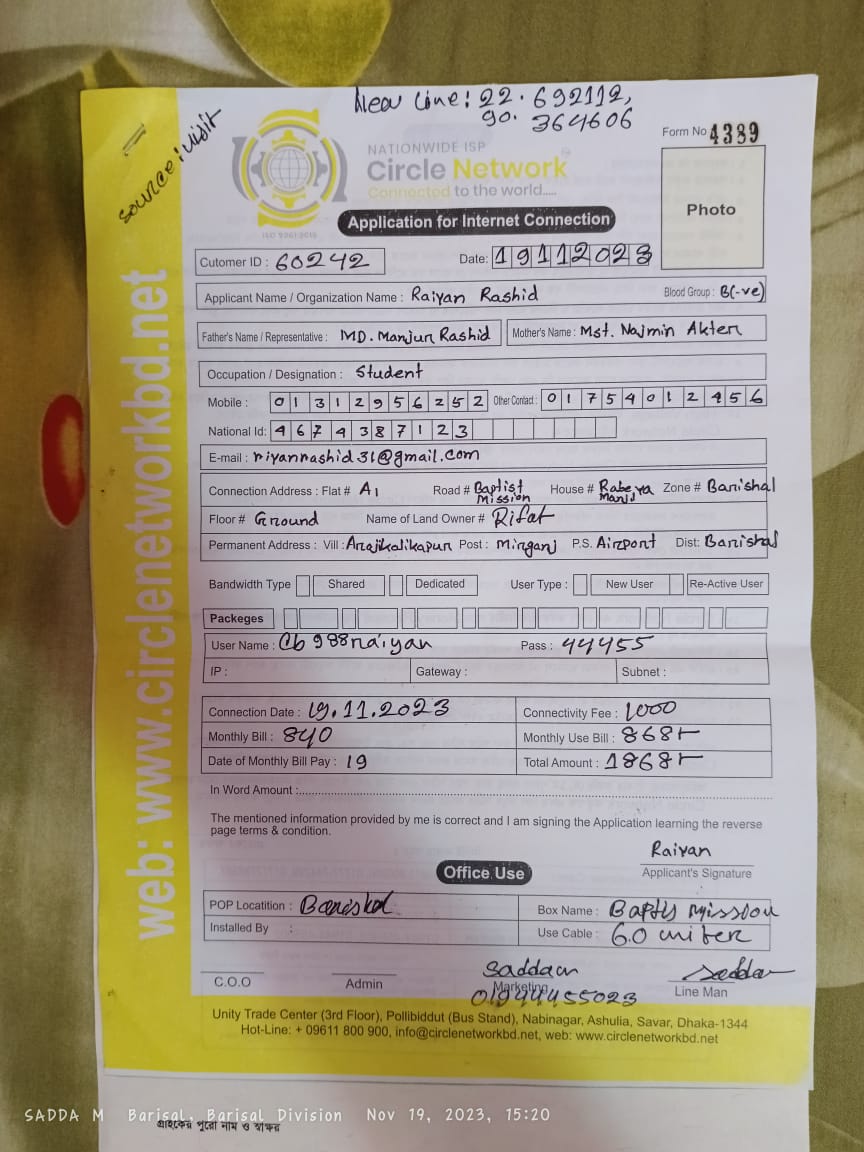 New Line: 22.692112,
90.364606
source: visit
NATIONWIDE ISP
Circle Network
Connected to the world.....
ISO 9001:2015
Form No 4389
Photo
Application for Internet Connection
Cutomer ID : 60242
Date: 19112023
Applicant Name / Organization Name : Raiyan Rashid
Blood Group : B(-ve)
Father's Name / Representative : MD. Manjur Rashid
Mother's Name : Mst. Najmin Akter
Occupation / Designation : Student
Mobile : 01312956252 Other Contact : 01754012456
National Id: 4674387123
E-mail : riyanrashid31@gmail.com
Connection Address : Flat # A1 Road # Baptist Mission House # Rabeya Manjil Zone # Barishal
Floor # Ground Name of Land Owner # Rifat
Permanent Address : Vill : Arajikalikapur Post : Mirganj P.S. Airport Dist: Barishal
Bandwidth Type Shared Dedicated User Type : New User Re-Active User
Packeges
User Name : Cb988raiyan Pass : 44455
IP : Gateway : Subnet :
Connection Date : 19.11.2023 Connectivity Fee : 1000
Monthly Bill : 840 Monthly Use Bill : 868
Date of Monthly Bill Pay : 19 Total Amount : 1868
In Word Amount :
The mentioned information provided by me is correct and I am signing the Application learning the reverse
page terms & condition.
Raiyan
Applicant's Signature
Office Use
POP Locatition : Barishal Box Name : Baptis Mission
Installed By : Use Cable : 60 miter
C.O.O Admin Saddam Marketing saddam Line Man
01944455023
Unity Trade Center (3rd Floor), Pollibiddut (Bus Stand), Nabinagar, Ashulia, Savar, Dhaka-1344
Hot-Line: + 09611 800 900, info@circlenetworkbd.net, web: www.circlenetworkbd.net
web: www.circlenetworkbd.net
SADDA M Barisal, Barisal Division Nov 19, 2023, 15:20
গ্রাহকের পুরো নাম ও স্বাক্ষর